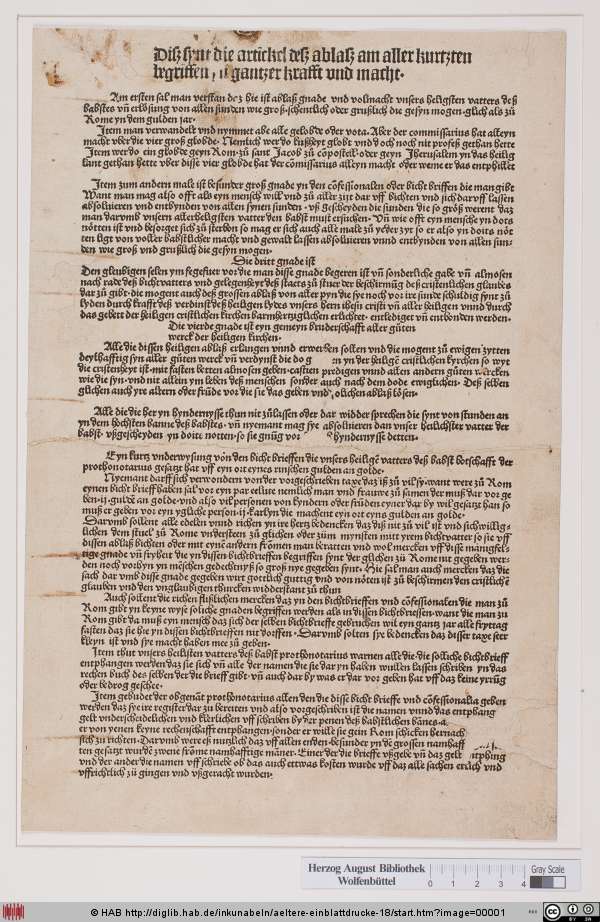 Diß synt die artickel deß ablaß am aller kurtzten
begriffen gantzer krafft vnd macht.
Am ersten sal man verstan daz hie ist ablaß gnade vnd vollmacht vnsers heligsten vatters deß
babstes vñ erlößung von allen sunden wie groß schentlich oder grußlich die gesyn mogen glich als zů
Rome yn dem gulden jar.
Item man verwandelt vnd nymmet abe alle gelobde oder vota. Aber der commissarius hat alleyn
macht vber die vier groß globde. Nemlich wer do kußheyt globt vnd doch noch nit profeß gethan hette
Item wer do ein globde geyn Rom. zů sant Jacob zů cōpostell oder geyn Jherusalem yn das heilig
lant gethan hette vber disse vier globde hat der cōmissarius alleyn macht oder weme er das entphilet
Item zum andern male ist besunder groß gnade yn den cōfessionalen oder bicht briffen die man gibt
Want man mag also offt als eyn mensch will vnd zů aller zijt dar vff bichten vnd sich daruff lassen
absoluieren vnd entbynden von allen synen sunden. vß gescheyden die sunden die so größ werent daz
man darvmb vnsern allerheligsten vatter den babst must ersuchen. Vñ wie offt eyn mensche yn dots
nötten ist vnd besorget sich zů sterben so mag er sich auch alle male zů yeder zyt so er also yn doits nöt
ten ligt von voller babstlicher macht vnd gewalt lassen absoluieren vnnd entbynden von allen sun-
den wie groß vnd grußlich die gesyn mogen.
Die dritt gnade ist
Den gleubigen selen ym fegefuer vor die man disse gnade begeren ist vñ sonderliche gabe vñ almosen
nach rade deß bichtvatters vnd gelegenheyt deß staets zů stuer der beschirmūg deß cristenlichen glaubēs
dar zů gibt. die mogent auch deß grossen ablaß von aller pyn die sye noch vor ire sunde schuldig synt zů
lyden durch krafft deß verdinst deß heiligen lydes vnsers hern ihesu cristi vñ aller heiligen vnnd durch
das gebett der heiligen cristlichen kirchen barmhertziglichen erlichtet. entlediget vñ entbonden werden.
Die vierde gnade ist eyn gemeyn bruderschafft aller gůten
werck der heiligen kirchen.
Alle die dissen heiligen ablaß erlangen vnnd erwerben sollen vnd die mogent zů ewigen zytten
deylhafftig syn aller gůten werck vñ verdynst die do g n yn der heiligē cristlichen kyrchen so wyt
die cristenheyt ist. mit fasten betten almosen geben. castien predigen vnnd allen andern gůten wercken
wie die syn. vnd nit allein ym leben deß menschen sonder auch nach dem dode ewiglichen. Deß selben
glichen auch yre altern oder frūde vor die sie das geben vnd solichen ablaß lösen.
Alle die die her yn hyndernysse thun nit zůlassen oder dar widder sprechen die synt von stunden an
yn dem höchsten banne deß babstes. vñ nyemant mag sye absolueren dan vnser heiligster vatter der
babst. vßgescheyden yn doitt notten. so sie gnūg vor hyndernysse detten.
Eyn kurtz vnderwysung von den bicht brieffen die vnsers heiligē vatters deß babst botschafft der
prothonotarius gesatzt hat vff eyn ort eynes rinschen gulden an golde.
Nyemant darff sich verwondern von der vorgeschrieben taxe daz iß zů vil sy. want were zů Rom
eynen bicht brieff haben sal vor eyn par eelute nemlich man vnd frauwe zů samen der muß dar vor ge
ben .ij. guldē an golde. vnd also vil personen von kyndern oder frūden eyner dar by wil gesatz han so
muß er geben vor eyn ygliche person .ij. karlyn die machent eyn ort eyns gulden an golde.
Darvmb sollent alle edelen vnnd richen yn ire hertz bedencken das diß nit zů vil ist vnd sich willig-
lichen dem stuel zů Rome vndersteen zů glichen oder zům mynsten mitt yrem bichtvatter so sie vff
dissen ablaß bichten oder mit eynē andern frömen man beratten vnd wol mercken vff disse manigfel-
tige gnade vñ fryheit die yn dissen bichtbrieffen begriffen synt der glichen zů Rome nit gegeben wer-
den noch vorhyn yn mēschen gedechtnyß so groß nye gegeben synt. Hie sal man auch mercken daz die
sach dar vmb disse gnade gegeben wirt gottlich guttig vnd von nöten ist zů beschirmen den cristlichē
glauben vnd den vnglaubigen thürcken widderstant zů thun
Auch sollent die richen flißlichen mercken daz yn den bichtbrieffen vnd cōfessionalen die man zů
Rom gibt yn keyne wyse soliche gnaden begriffen werden als in dissen bichtbriessen. want die man zu
Rom gibt da muß eyn mensch daz sich der selben bichtbrieffe gebruchen wil eyn gantz jar alle fryttag
fasten daz sie hie yn dissen bichtbrieffen nit dorffen. Darvmb solten sye bedencken daz disser taxe seer
kleyn ist vnd sye macht haben mee zů geben.
Item thut vnsers heilisten vatters deß babst prothonotarius warnen alle die. die solliche bichtbrieff
entphangen werden daz sie sich vñ alle der namen die sie dar yn haben wullen lassen schriben yn das
rechen buch des selben der die brieff gibt. vñ auch dar by was er dar vor geben hat vff daz keine yrrūg
oder bedrog geschee.
Item gebudet der obgenāt prothonotarius allen den die disse bicht brieffe vnd cōfessionalia geben
werden daz sye ire register dar zů bereiten vnd also vorgeschriben ist die namen vnnd das entphang
gelt vnderscheidelichen vnd klerlichen vff schriben by der penen deß babstlichen bānes.
er von yenen keyne rechenschafft entphangen. sonder er wille sie gein Rom schicken hernach
sich zů richten. Darumb were eß nutzlich daz vff allen enden. besunder yn dē grossen namhaff
ten gesatzt wurdē zwene frōme namhafftige māner. Einer der die brieffe vßgebe vñ daz gelt entphing
vnd der ander die namen vff schriebe ob das auch ettwas kosten wurde vff daz alle sachen erlich vnd
vffrichtlich zů gingen vnd vßgeracht wurden.
Herzog August Bibliothek
Wolfenbüttel
0 1 2 3 4
Gray Scale
© HAB http://diglib.hab.de/inkunabeln/aeltere-einblattdrucke-18/start.htm?image=00001
cc BY SA